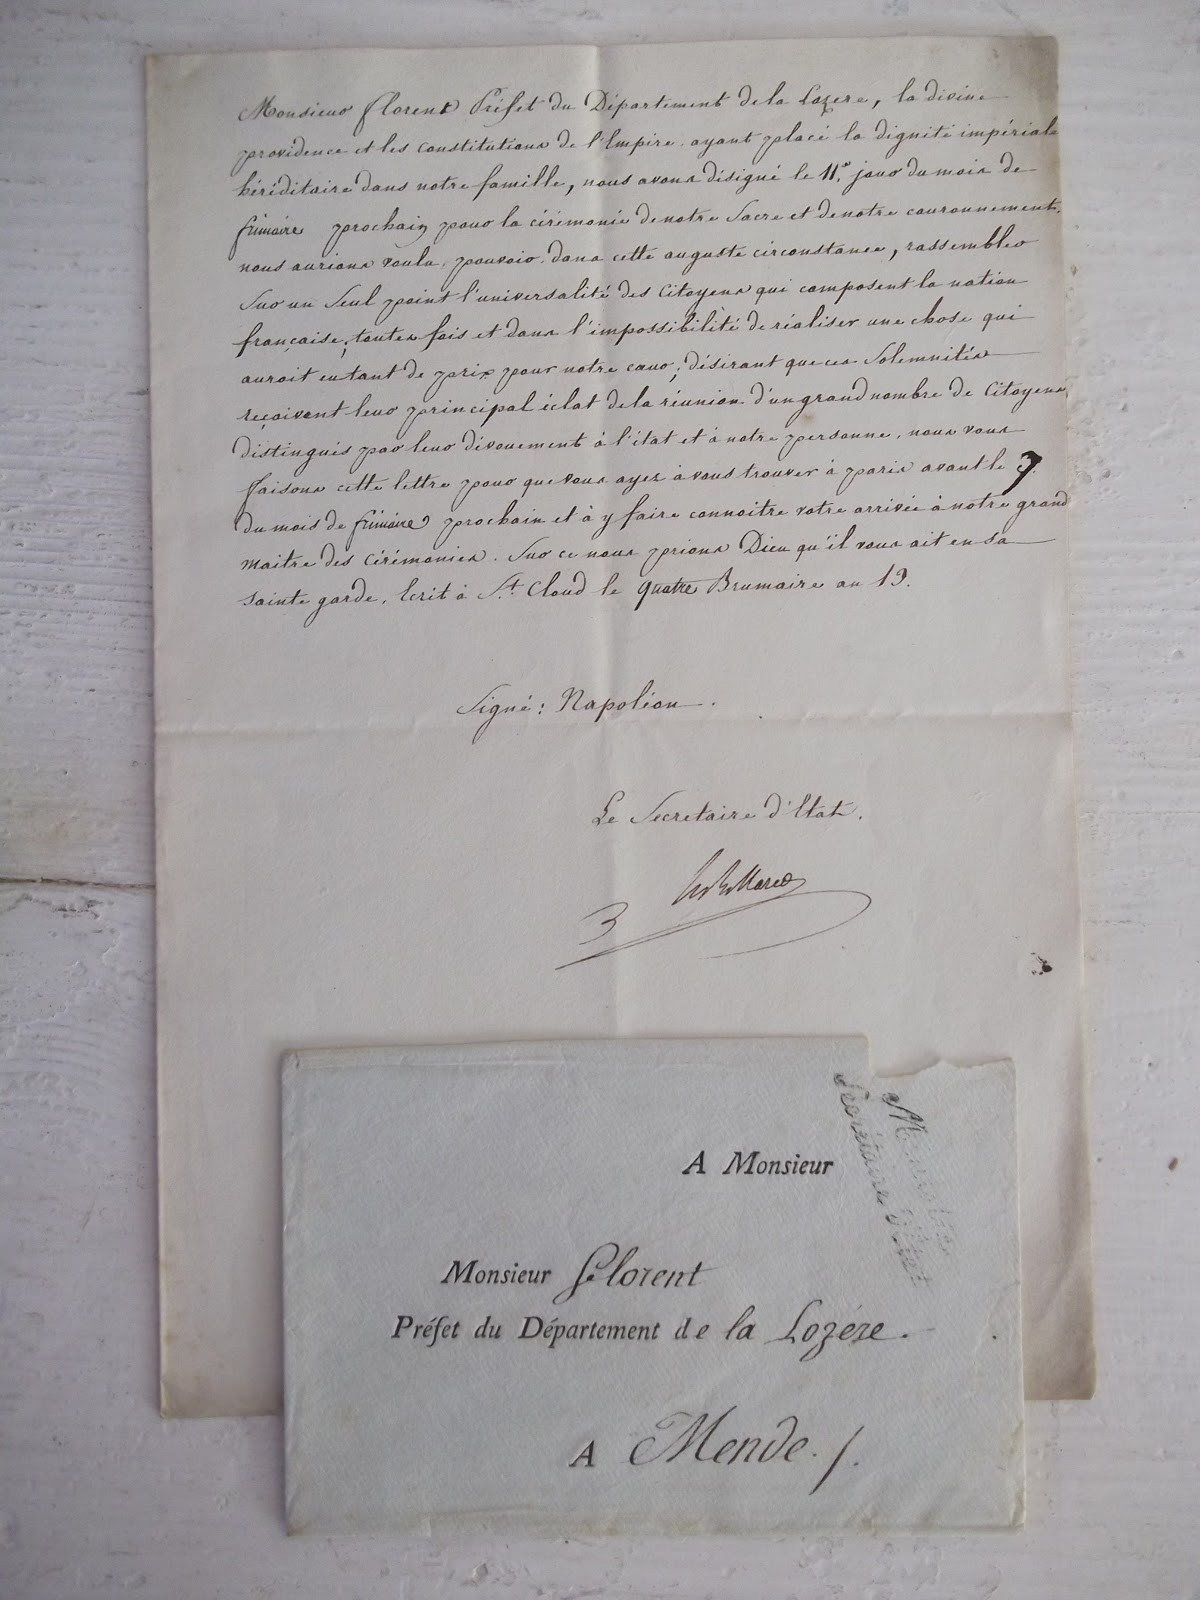 Monsieur Florent Préfet du Département de la Lozère, la divine
providence et les constitutions de l'Empire ayant placé la dignité impériale
héréditaire dans notre famille, nous avons désigné le 11.e jour du mois de
frimaire prochain pour la cérémonie de notre Sacre et de notre couronnement.
nous aurions voulu pouvoir dans cette auguste circonstance, rassembler
Sur un Seul point l'universalité des Citoyens qui composent la nation
française; toutes fois et dans l'impossibilité de réaliser une chose qui
auroit eu tant de prix pour notre cœur; désirant que ces Solemnités
reçoivent leur principal éclat de la réunion d'un grand nombre de Citoyens
distingués par leur dévouement à l'état et à notre personne, nous vous
faisons cette lettre pour que vous ayez à vous trouver à paris avant le 7
du mois de frimaire prochain et à y faire connoitre votre arrivée à notre grand
maitre des cérémonies. Sur ce nous prions Dieu qu'il vous ait en sa
sainte garde. Ecrit à St. Cloud le quatre Brumaire an 13.
Signé: Napoléon.
Le Secretaire d'Etat.
Maret
A Monsieur
Secrétaire d'Etat
Monsieur Florent
Préfet du Département de la Lozére.
A Mende.